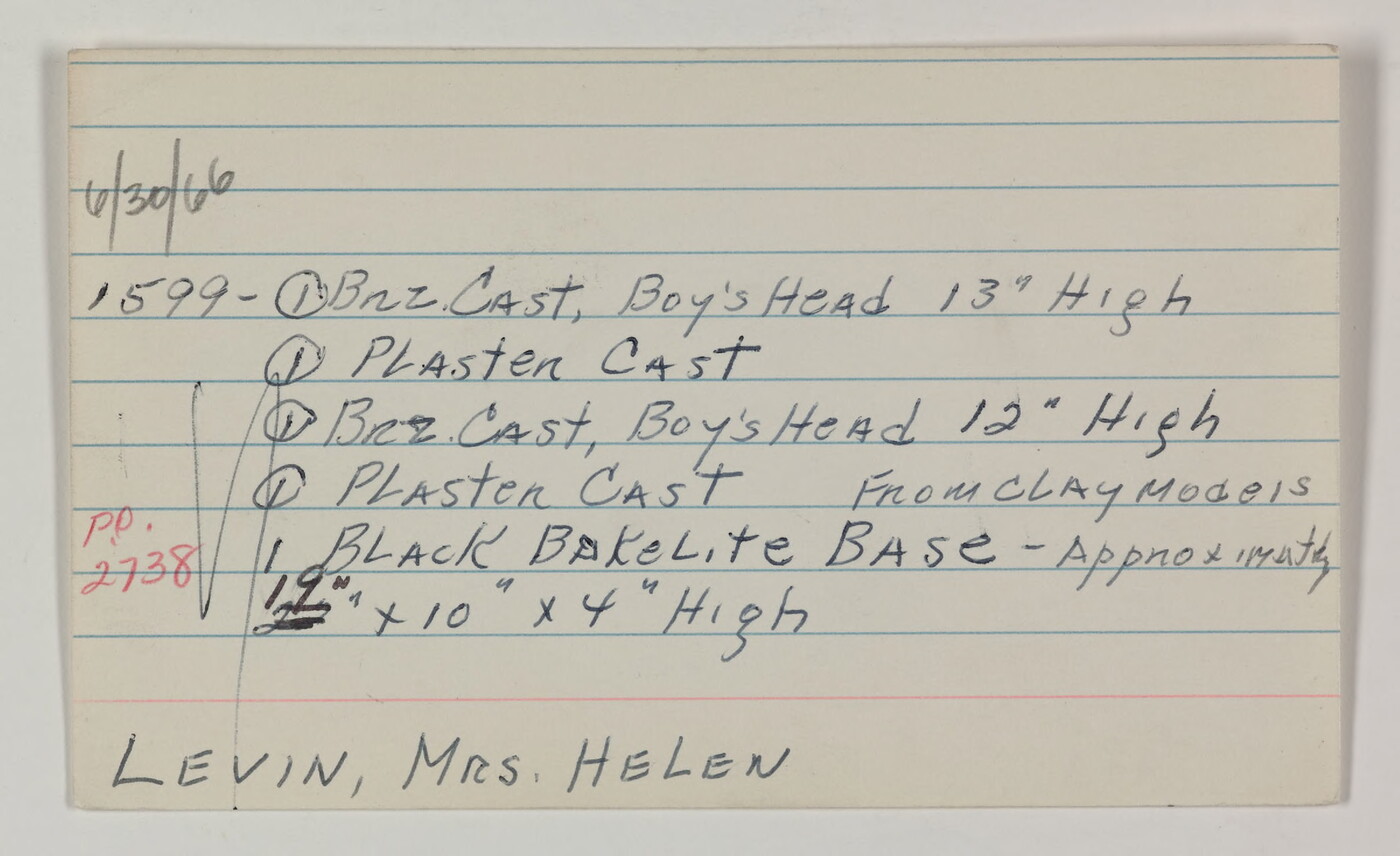 6/30/66
1599- ① Brz. Cast, Boy's Head 13" High
① Plaster Cast
① Brz. Cast, Boy's Head 12" High
① Plaster Cast From Clay Models
PD.
2738
1 Black Bakelite Base - Approximately
19" " x 10" x 4" High
Levin, Mrs. Helen